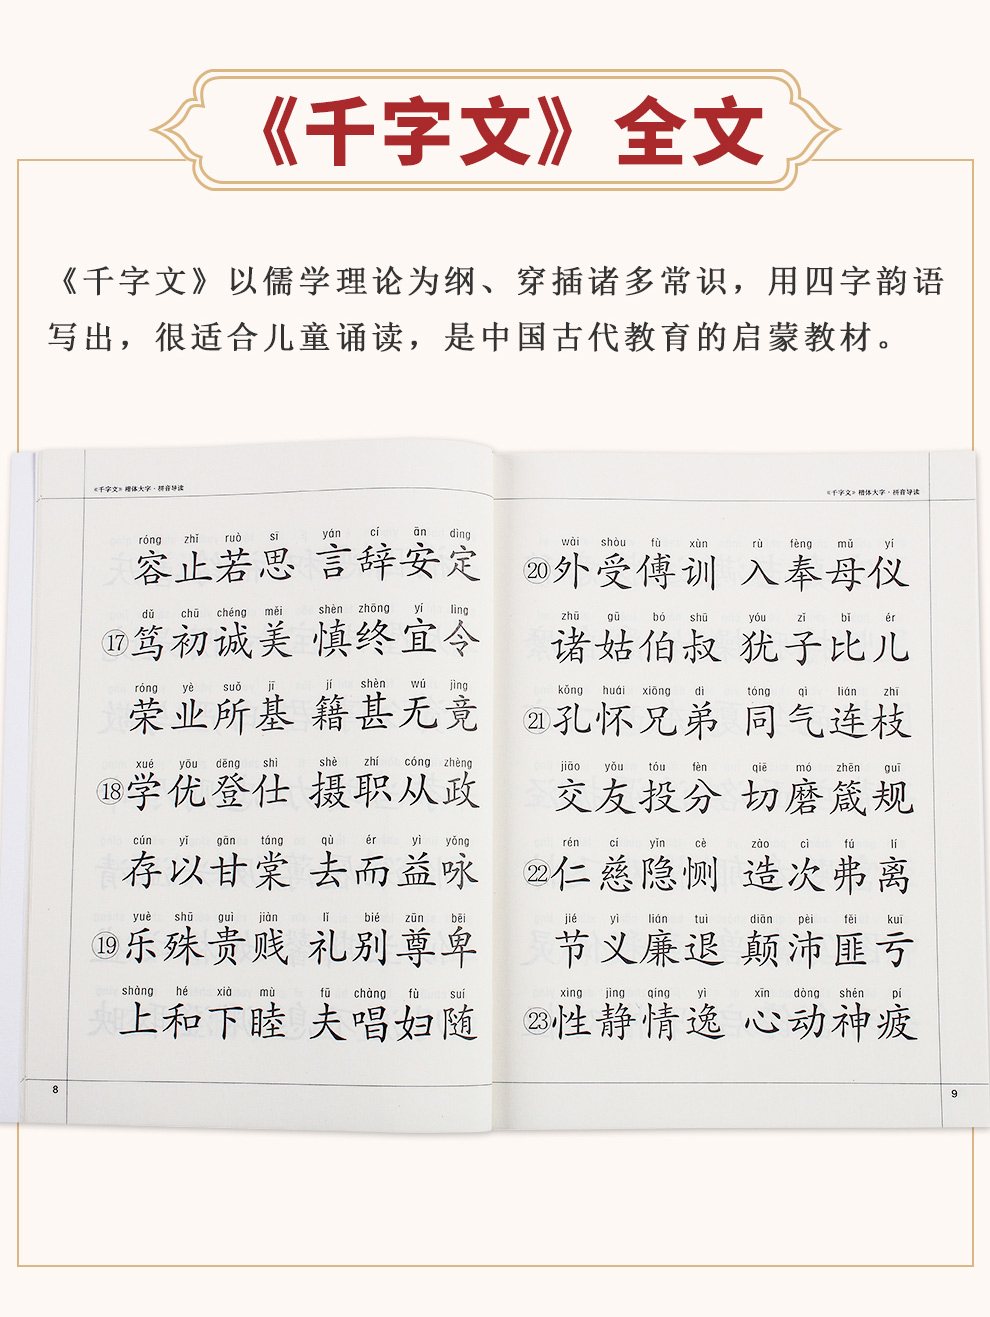 《千字文》全文
《千字文》以儒学理论为纲、穿插诸多常识，用四字韵语
写出，很适合儿童诵读，是中国古代教育的启蒙教材。
《千字文》楷体大字·拼音导读
róng zhǐ ruò sī yán cí ān dìng
容止若思 言辞安定
dǔ chū chéng měi shèn zhōng yí lìng
⑰笃初诚美 慎终宜令
róng yè suǒ jī jí shèn wú jìng
荣业所基 籍甚无竟
xué yōu dēng shì shè zhí cóng zhèng
⑱学优登仕 摄职从政
cún yǐ gān táng qù ér yì yǒng
存以甘棠 去而益咏
yuè shū guì jiàn lǐ bié zūn bēi
⑲乐殊贵贱 礼别尊卑
shàng hé xià mù fū chàng fù suí
上和下睦 夫唱妇随
8
《千字文》楷体大字·拼音导读
wài shòu fù xùn rù fèng mǔ yí
⑳外受傅训 入奉母仪
zhū gū bó shū yóu zǐ bǐ ér
诸姑伯叔 犹子比儿
kǒng huái xiōng dì tóng qì lián zhī
㉑孔怀兄弟 同气连枝
jiāo yǒu tóu fèn qiē mó zhēn guī
交友投分 切磨箴规
rén cí yǐn cè zào cì fú lí
㉒仁慈隐恻 造次弗离
jié yì lián tuì diān pèi fěi kuī
节义廉退 颠沛匪亏
xìng jìng qíng yì xīn dòng shén pí
㉓性静情逸 心动神疲
9